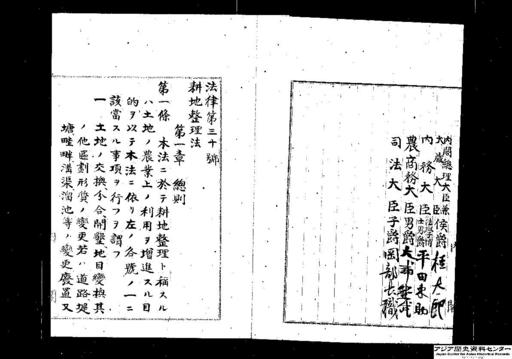 内閣總理大臣兼
大藏大臣侯爵桂太郎
内務大臣法學博士男爵平田東助
農商務大臣男爵大浦兼武
司法大臣子爵岡部長職
法律第三十號
耕地整理法
第一章 總則
第一條 本法ニ於テ耕地整理ト稱スル
ハ土地ノ農業上ノ利用ヲ增進スル目
的ヲ以テ本法ニ依リ左ノ各號ノ一ニ
該當スル事項ヲ行フヲ謂フ
一 土地ノ交換分合開墾地目變換其
ノ他區劃形質ノ變更若ハ道路堤
塘畦畔溝渠溜池等ノ變更廢置又
アジア歴史資料センター
Japan Center for Asian Historical Records